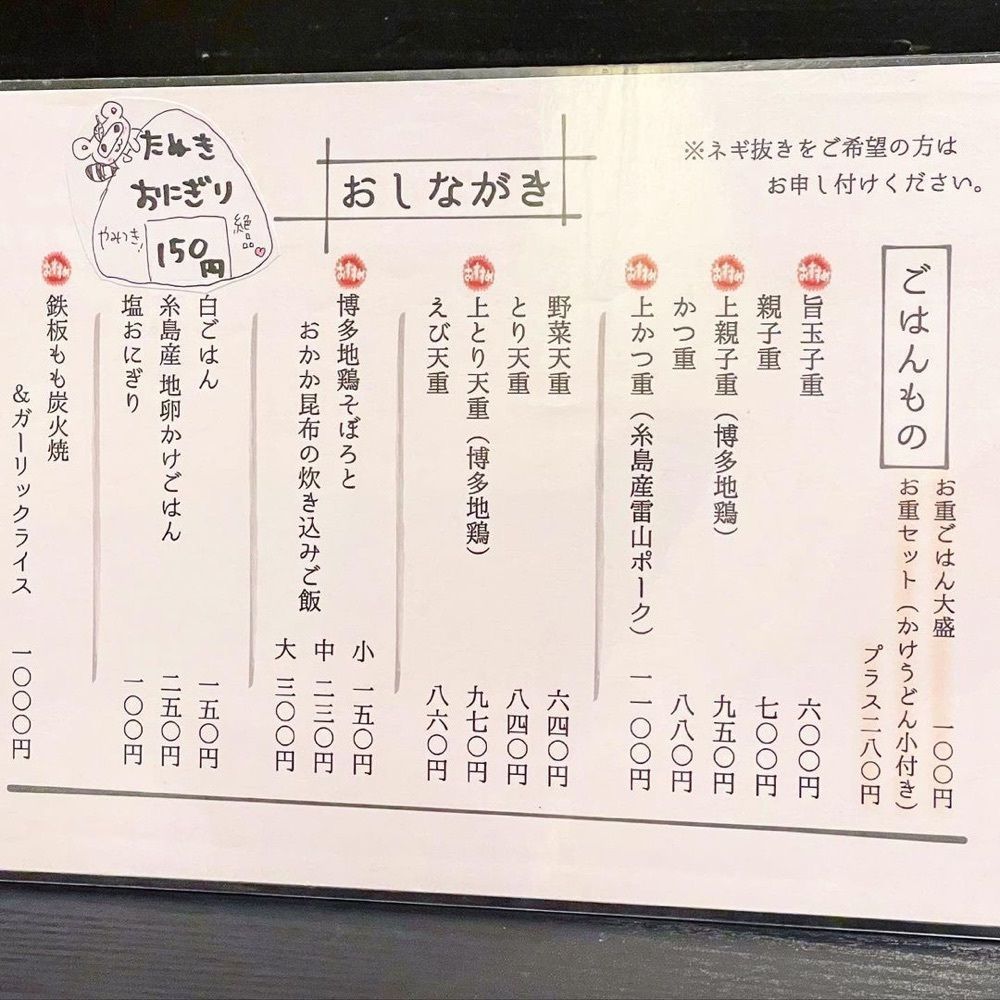 おしながき
※ネギ抜きをご希望の方は
お申し付けください。
ごはんもの
お重ごはん大盛 一〇〇円
お重セット（かけうどん小付き）
プラス二八〇円
おすすめ
旨玉子重 六〇〇円
親子重 七〇〇円
おすすめ
上親子重（博多地鶏） 九五〇円
かつ重 八八〇円
おすすめ
上かつ重（糸島産雷山ポーク） 一一〇〇円
野菜天重 六四〇円
とり天重 八四〇円
おすすめ
上とり天重（博多地鶏） 九七〇円
えび天重 八六〇円
おすすめ
博多地鶏そぼろと
おかか昆布の炊き込みご飯
小 一五〇円
中 二三〇円
大 三〇〇円
たぬき
おにぎり
絶品
やみつき!
150円
白ごはん 一五〇円
糸島産 地卵かけごはん 二五〇円
塩おにぎり 一〇〇円
おすすめ
鉄板もも炭火焼
&ガーリックライス 一〇〇〇円